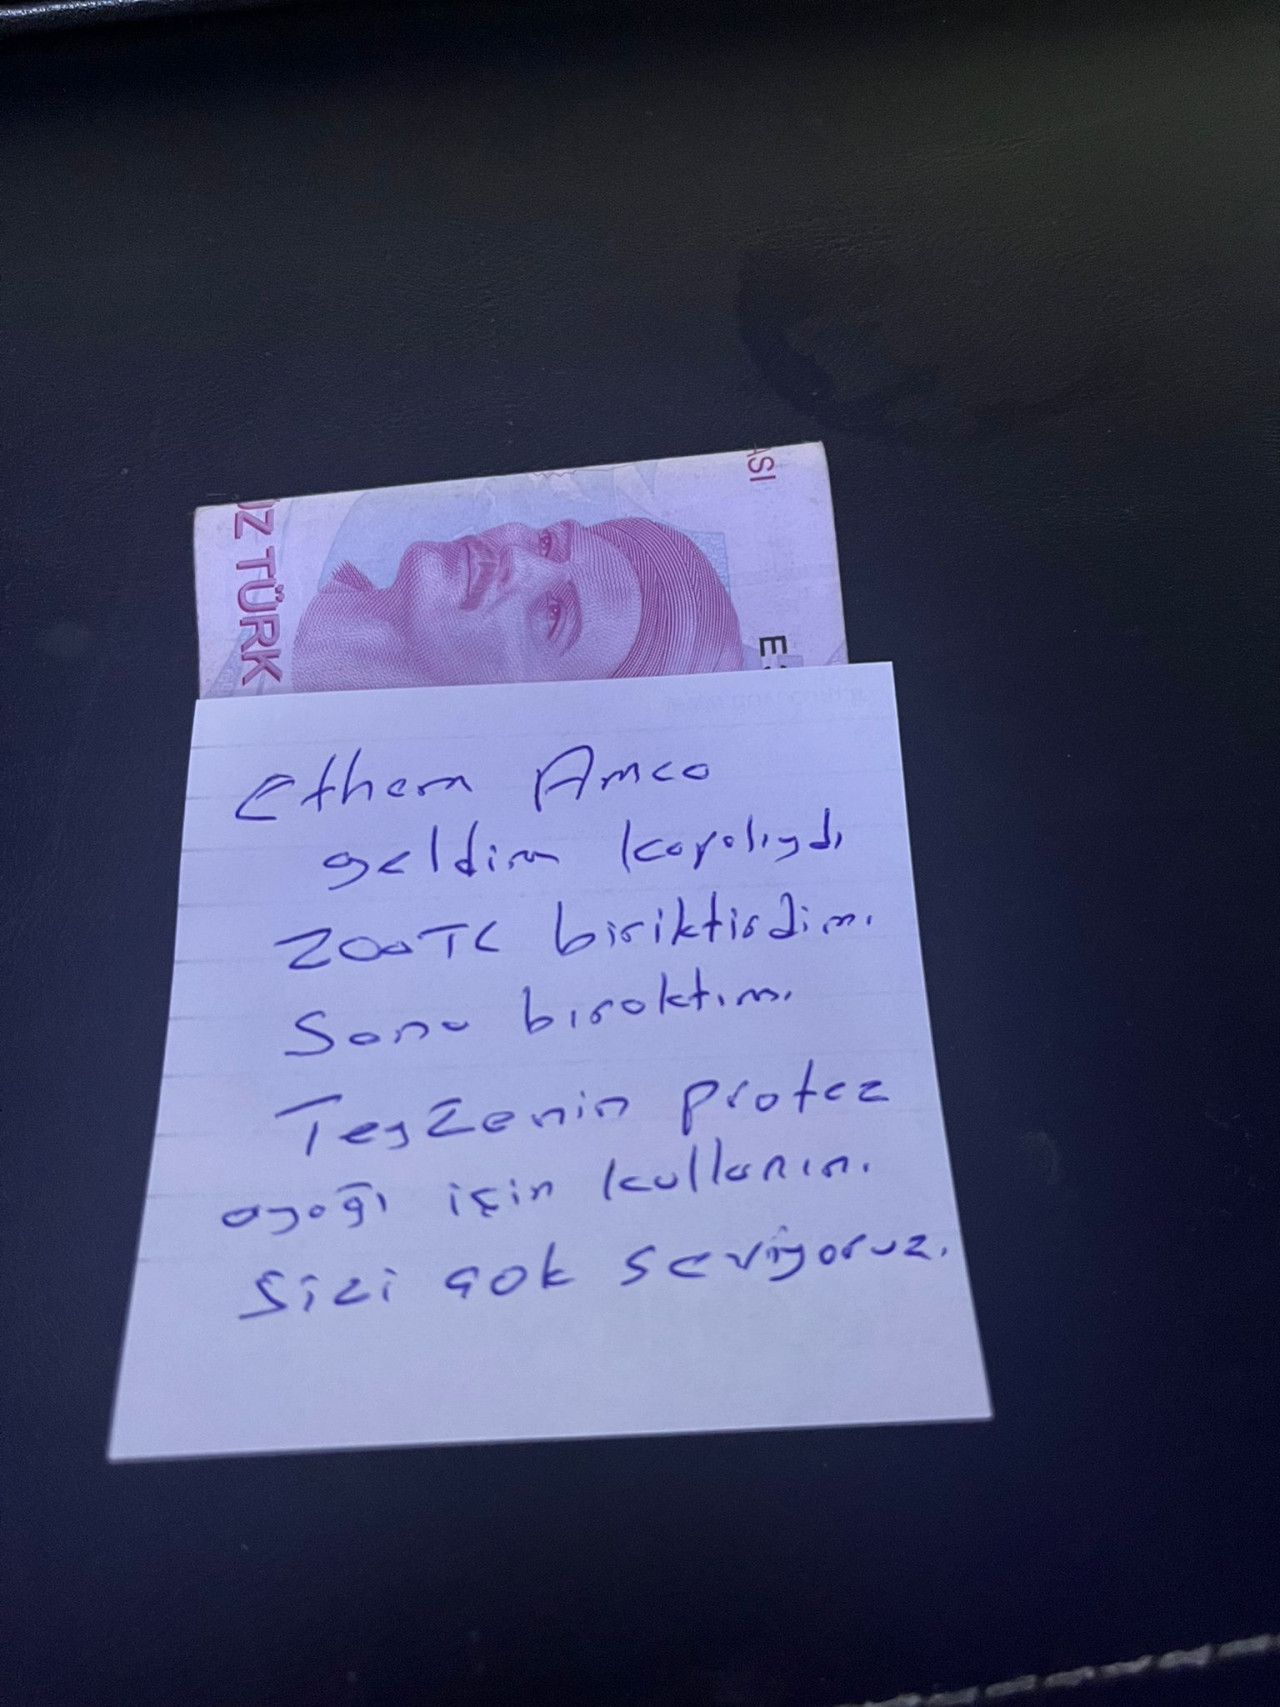 ÜZ TÜRK
ASI
E
Ethem Amca
geldim kapalıydı
200TL biriktirdim.
Sana bıraktım.
Teyzenin protez
ayağı için kullanın.
Sizi çok seviyoruz.